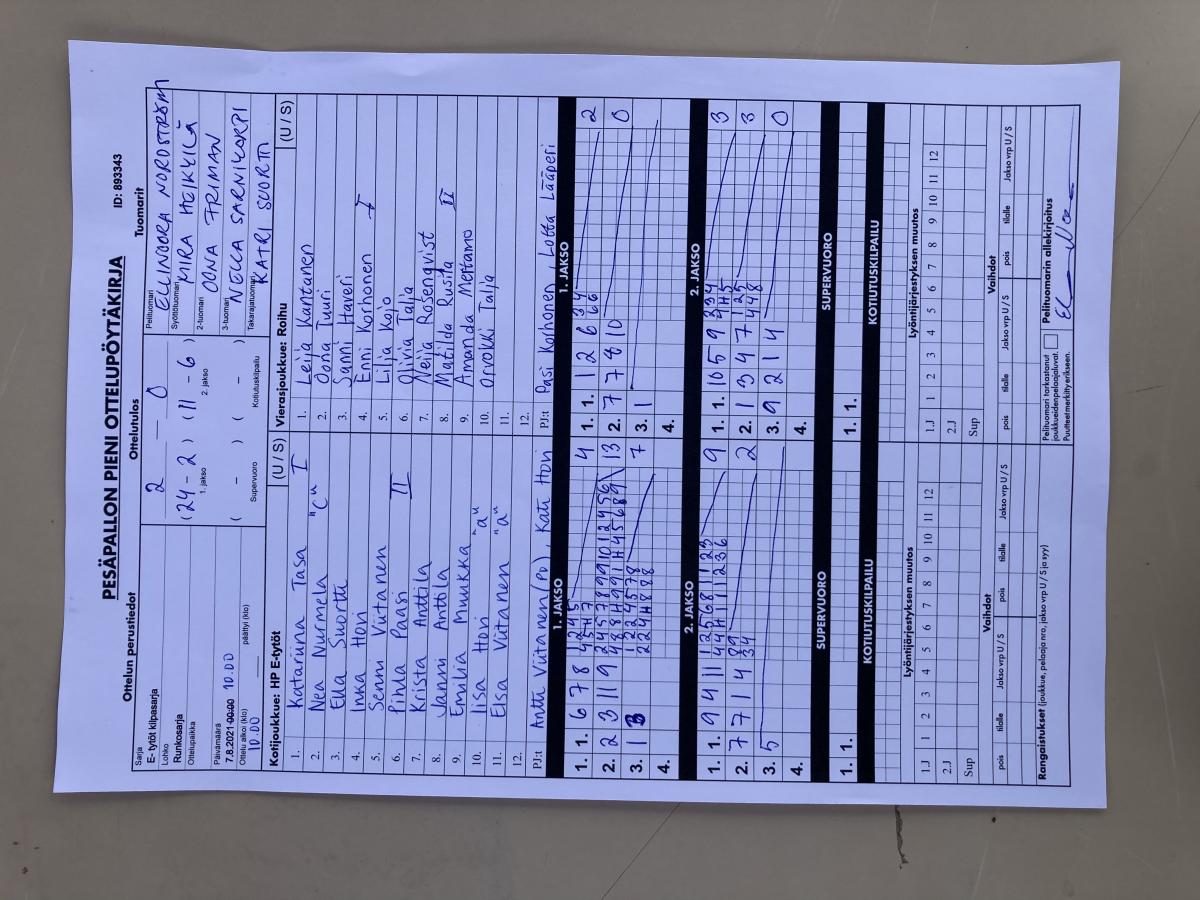 PESÄPALLON PIENI OTTELUPÖYTÄKIRJA
ID: 893343
Ottelun perustiedot
Ottelutulos
Tuomarit
Sarja
E- tytöt kilpasarja
Lohko
Runkosarja
Ottelupaikka
Päivämäärä
7.8.2021 00.00 10.00
Ottelu alkoi (klo)
päättyi (klo)
10.00
2 — 0
(24 - 2) (11 - 6)
1. jakso 2. jakso
( - ) ( - )
Supervuoro Kotiutuskilpailu
Pelituomari
ELLINOORA NORDSTRÖM
Syöttötuomari
MIRA HEIKKILÄ
2-tuomari
OONA FRIMAN
3-tuomari
NELLA SARNIKORPI
Takarajatuomari
KATRI SUORTTI
Kotijoukkue: HP E-tytöt (U / S)
1. Katariina Tasa I
2. Nea Nurmela "C"
3. Ella Suortti
4. Inka Hori
5. Senni Viitanen
6. Pihla Paasi II
7. Krista Anttila
8. Janni Anttila
9. Emilia Muukka
10. Iisa Hori "a"
11. Elsa Viitanen "a"
12.
PJ:t Antti Viitanen (PJ), Kati Hori
Vierasjoukkue: Roihu (U / S)
1. Leija Kantanen
2. Oona Tuuri
3. Sanni Haveri
4. Enni Korhonen I
5. Lilja Kojo
6. Olivia Talja
7. Neija Rosenqvist
8. Matilda Rusila II
9. Amanda Mertamo
10. Orvokki Talja
11.
12.
PJ:t Pasi Korhonen, Lotta Lääperi
1. JAKSO
1. 1. 6 7 8 4
2. 2 3 11 9 13
3. 1 3 7
4.
1. JAKSO
1. 1. 1 2 6 2
2. 7 7 8 10 0
3. 1
4.
2. JAKSO
1. 1. 9 4 11 9
2. 7 7 1 4 2
3. 5
4.
2. JAKSO
1. 1. 10 5 9 3
2. 1 3 4 7 3
3. 9 2 1 4 0
4.
SUPERVUORO
1. 1.
SUPERVUORO
1. 1.
KOTIUTUSKILPAILU
KOTIUTUSKILPAILU
Lyöntijärjestyksen muutos
1.J 1 2 3 4 5 6 7 8 9 10 11 12
2.J
Sup
Lyöntijärjestyksen muutos
1.J 1 2 3 4 5 6 7 8 9 10 11 12
2.J
Sup
Vaihdot
pois tilalle Jakso vrp U / S pois tilalle Jakso vrp U / S
Vaihdot
pois tilalle Jakso vrp U / S pois tilalle Jakso vrp U / S
Rangaistukset (joukkue, pelaaja nro, jakso vrp U / S ja syy)
Pelituomari tarkastanut
joukkueidenpelaajaluvat.
Puutteetmerkittyerikseen.
Pelituomarin allekirjoitus